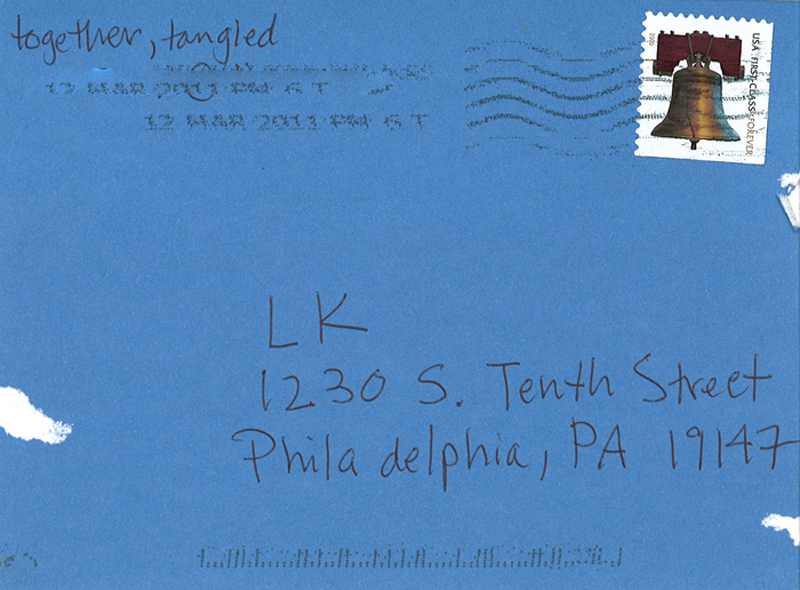 together, tangled
12 MAR 2011 PM 6 T
12 MAR 2011 PM 6 T
USA FIRST-CLASS FOREVER
2009
L K
1230 S. Tenth Street
Philadelphia, PA 19147